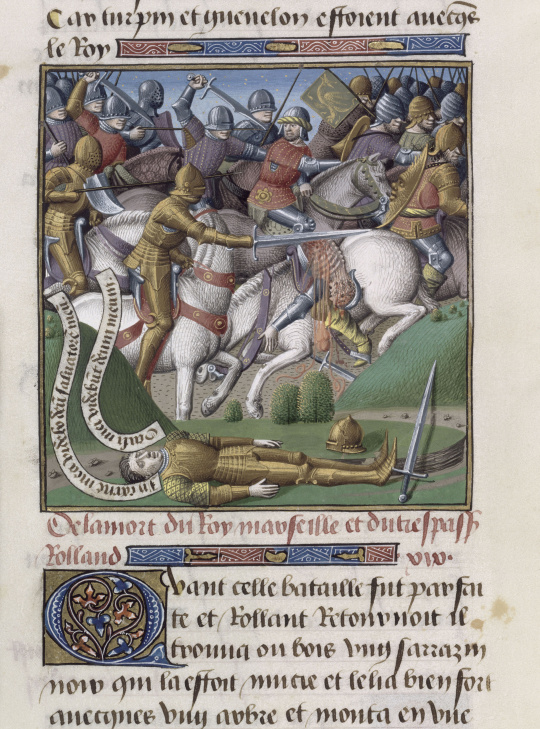 Car turpin et guenelon estoient auecqs
le Roy
In carne mea videbo deum saluatorem meum
Oculi mei videbunt deum meum
De la mort du Roy marseille et du trespass
Rolland xiiiie.
Quant celle bataille fut parfai
te et Rollant Retournoit il
trouua ou bois vng sarrazin
noir qui la estoit mucie et le lia bien fort
auecques vng arbre et monta en vne